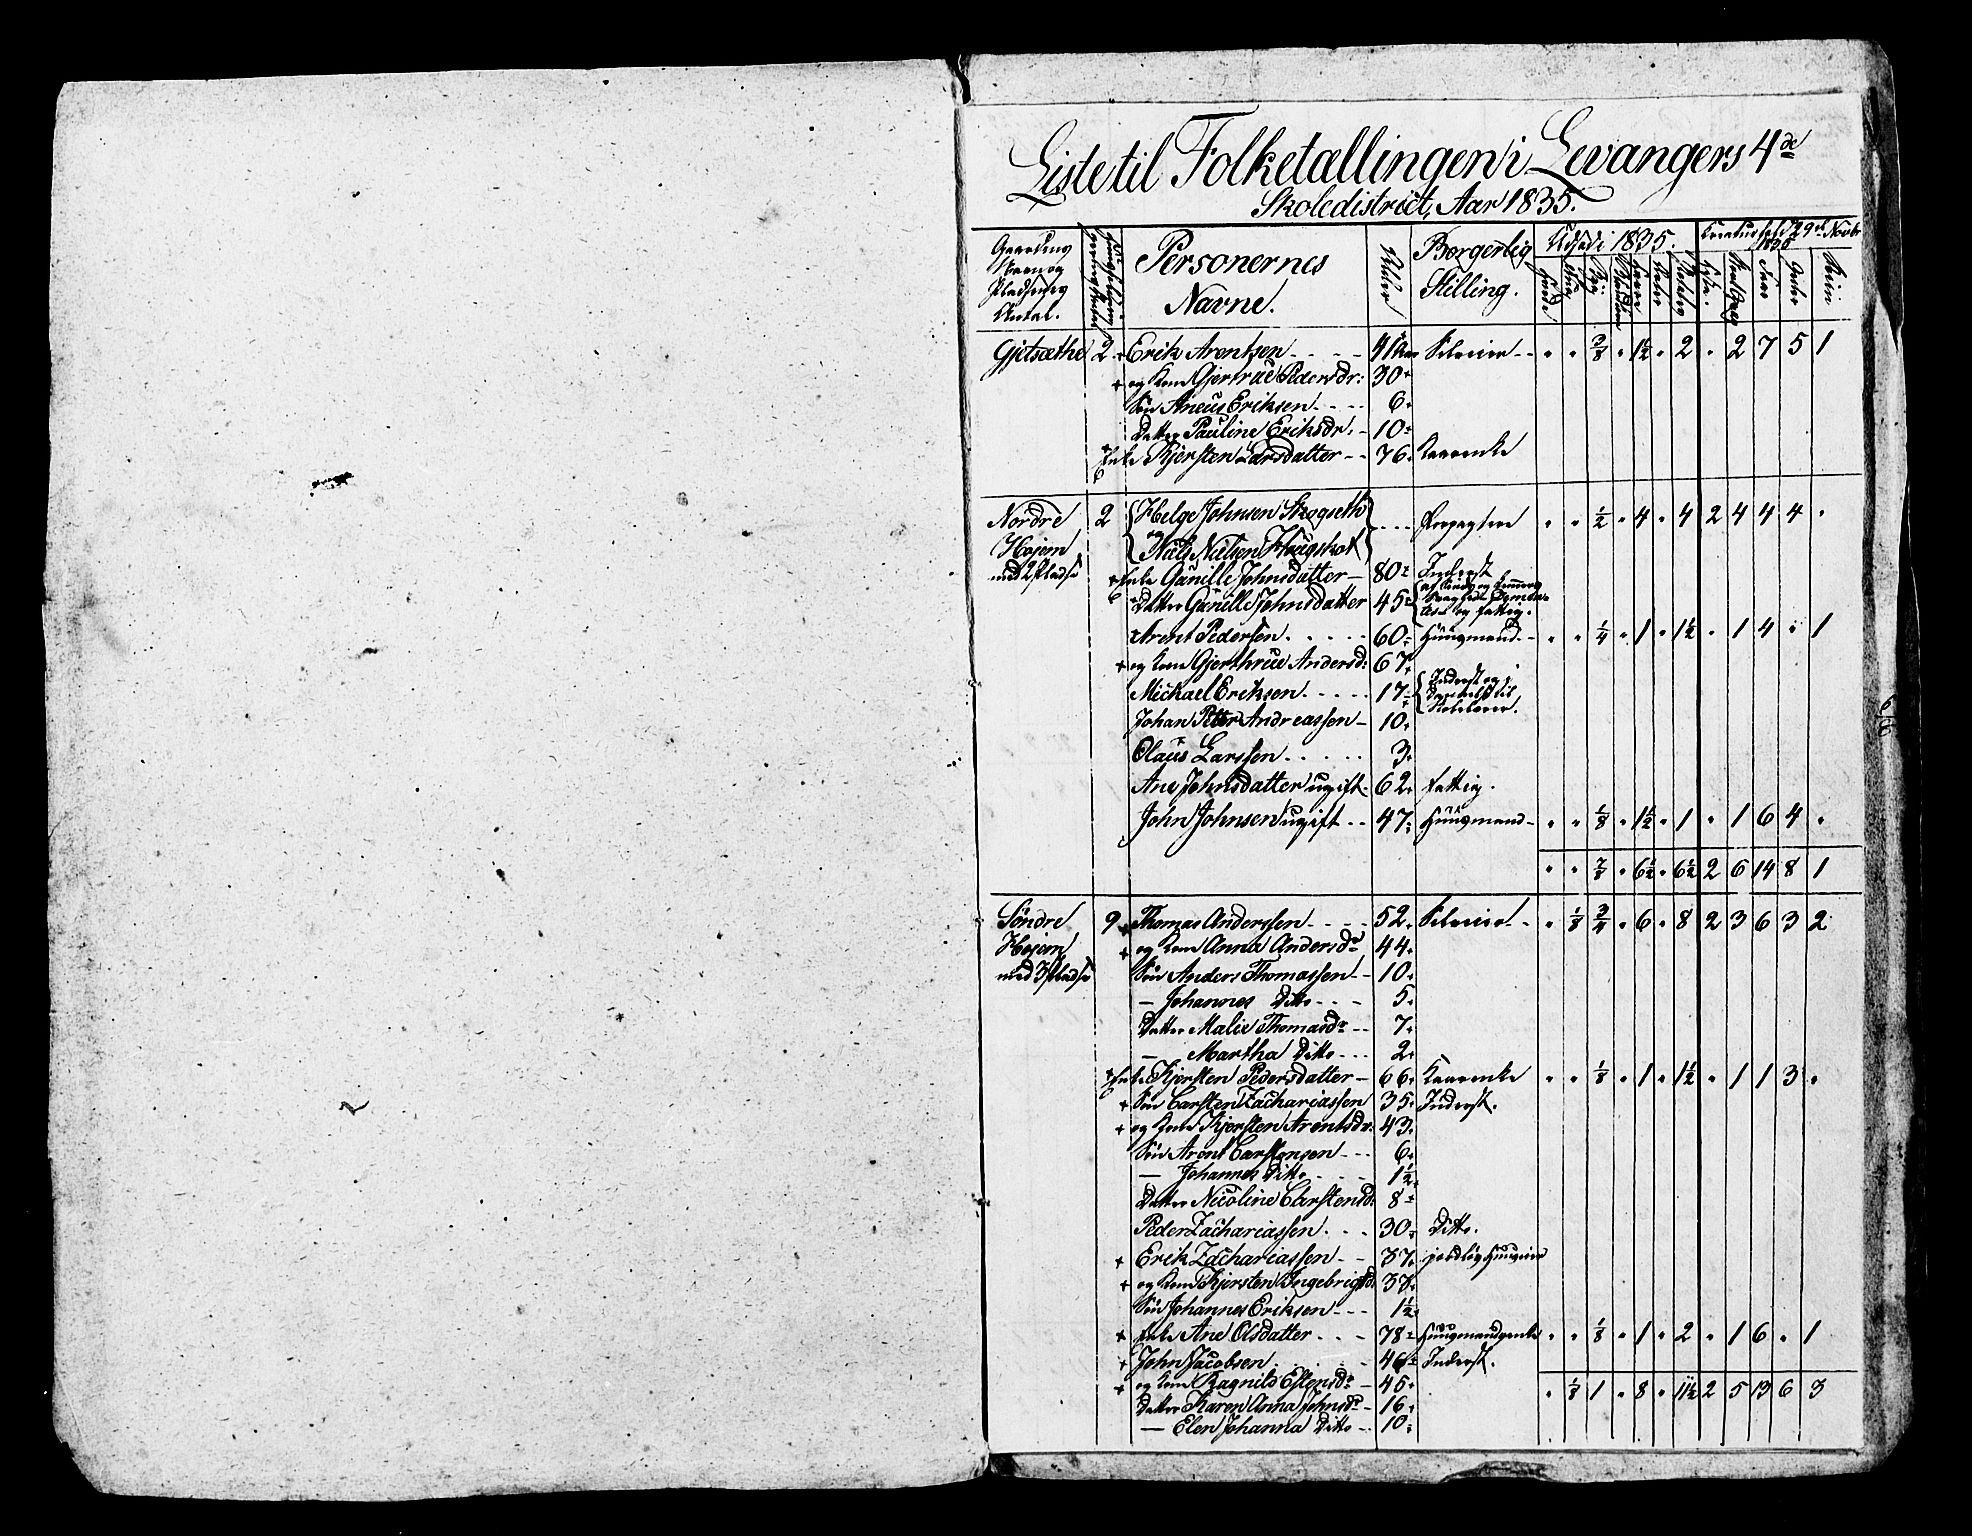 Liste til Folketællingen i Levangers 4de
Skoledistrict, Aar 1835.
Gaardens Navn og Pladsenes Antal. Personernes Navne. Alder Borgerlig Stilling. Udsæd i 1835. Kreaturhold 29de Novbr 1835
Heste Faar Sviin
Gjetsæthe 2 + Erik Arentsen 41 Aar Selveier " " 3/8 " 1 1/2 " 2 " 2 7 5 1
+ og Kone Gjertrue Pedersdr: 30
Søn Aneus Eriksen 6
Datter Pauline Eriksdr: 10
+ Enke Kjersten Larsdatter 76 Kaarenke
Nordre Hojem med 2 Pladse 2 Helge Johnsen Skogseth Forpagtere " " 1/2 " 4 " 4 2 4 4 4 "
og Niels Nielsen Haugskot
+ Enke Gunille Johnsdatter 80 Inderst
Datter Gunille Johnsdatter 45 og fattig.
Arent Pedersen 60 Huusmand " " 1/4 " 1 " 1 1/2 " 1 4 " 1
+ og Kone Gjerthrue Andersd: 67
Mickael Eriksen 17 Inderst og i Dyrkelse til Selveier.
Johan Petter Andreassen 10
Olaus Larssen 3
Ane Johnsdatter ugift 62 fattig.
John Johnsen ugift 47 Huusmand " " 1/8 " 1 1/2 " 1 " 1 6 4 "
" " 7/8 " 6 1/2 " 6 1/2 2 6 14 8 1
Søndre Hojem med 3 Pladse 9 + Thomas Anderssen 52 Selveier " 1/8 3/4 " 6 " 8 2 3 6 3 2
+ og Kone Anna Andersdr 44
Søn Anders Thomassen 10
— Johannes Ditto 5
Datter Malie Thomasdr 7
— Martha Ditto 2
+ Enke Kjersten Pedersdatter 66 Kaarenke " " 1/8 " 1 " 1 1/2 " 1 1 3 "
+ Søn Carsten Zachariassen 35 Inderst.
+ og Kone Kjersten Arentsdr: 43
Søn Arent Carstensen 6
— Johannes Ditto 1 1/2
Datter Nicoline Carstensd: 8
Peder Zachariassen 30 Ditto.
+ Erik Zachariassen 37 jordløs Huusmand
+ og Kone Kjersten Ingebrigtsd: 38
Søn Johannes Eriksen 1 1/2
+ Enke Ane Olsdatter 78 Huusmandsenke " " 1/8 " 1 " 2 " 1 6 " 1
+ John Jacobsen 46 Inderst.
+ og Kone Ragnild Estensdr 45 " 1/8 1 " 8 " 11 1/2 2 5 13 6 3
Datter Karen Anna Johnsdr 16
— Elen Johanna Ditto 10